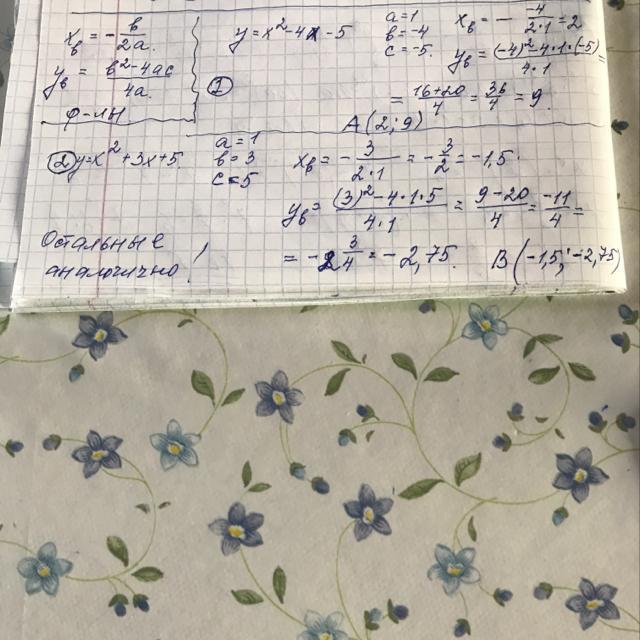 x_в = - в/2a.
y_в = в²-4ac/4a.
ф-лы
① y=x²-4x-5
a=1
в=-4
c=-5.
x_в = - -4/2·1 = 2
y_в = (-4)²-4·1·(-5)/4·1 =
= 16+20/4 = 36/4 = 9.
A(2; 9)
② y=x²+3x+5.
a=1
в=3
c=5
x_в = - 3/2·1 = - 3/2 = -1,5.
y_в = (3)²-4·1·5/4·1 = 9-20/4 = -11/4 =
= -2 3/4 = -2,75. B(-1,5; -2,75)
Остальные
аналогично!